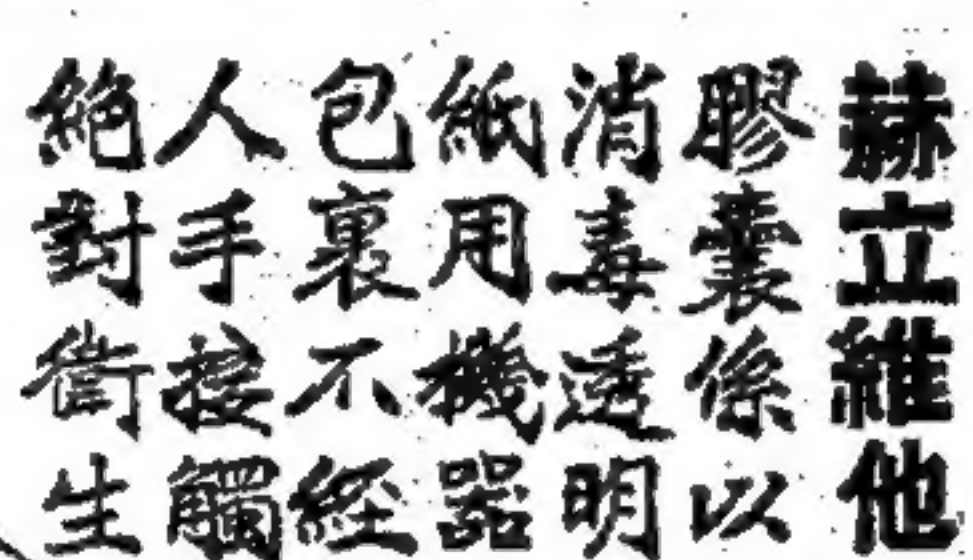 赫立維他
膠囊係以
消毒透明
紙用機器
包裹不經
人手接觸
絕對衛生